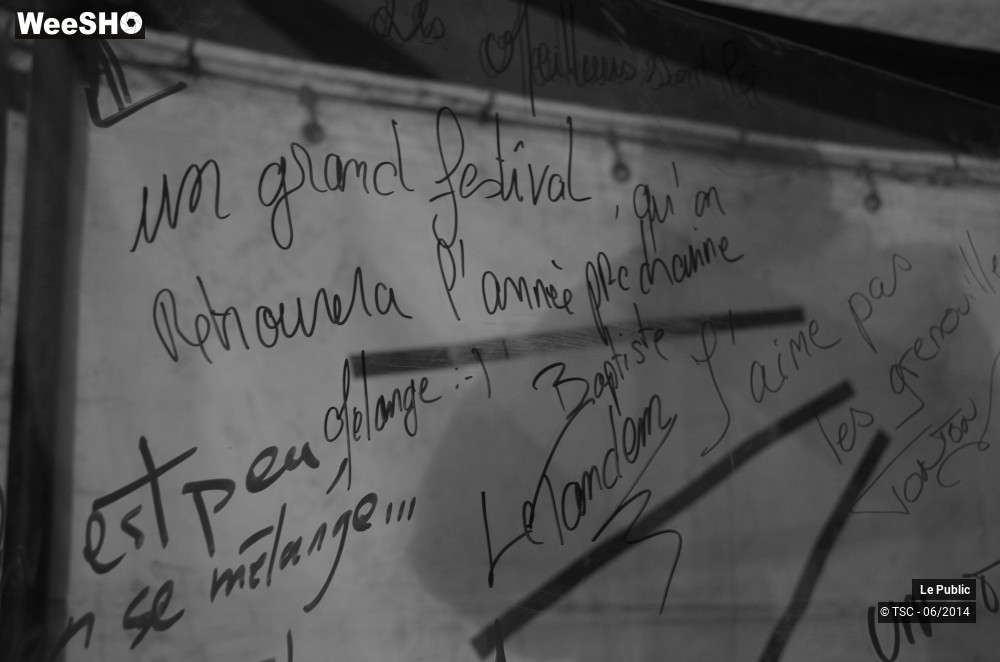 WeeSHO
des
Meilleurs sont là
un grand festival, qu'on
Retrouvera l'année prochaine
Mélange :-)
Baptiste
Le Tandem
J'aime pas
les grenouilles
est peu
on se mélange...
Le Public
© TSC - 06/2014